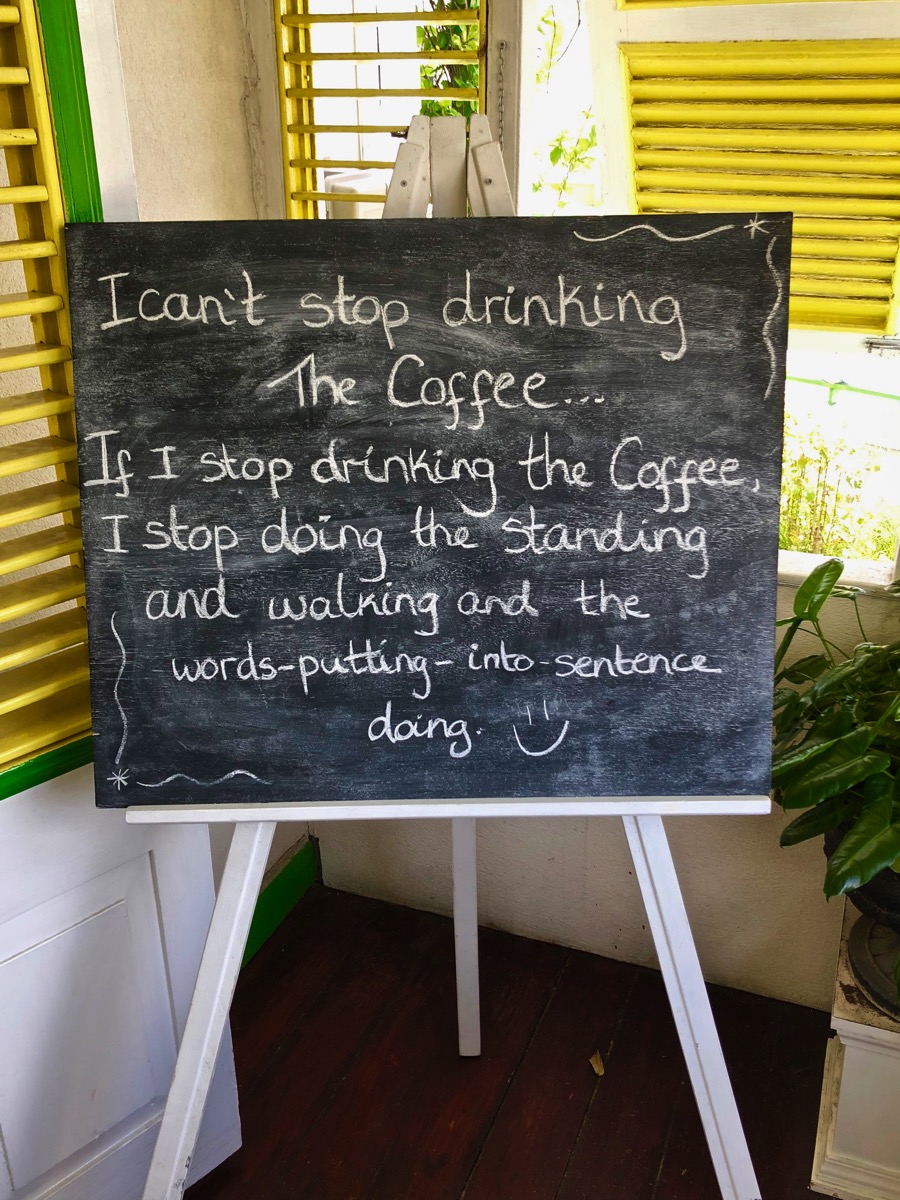 I can't stop drinking
The Coffee...
If I stop drinking the Coffee,
I stop doing the standing
and walking and the
words-putting-into-sentence
doing.